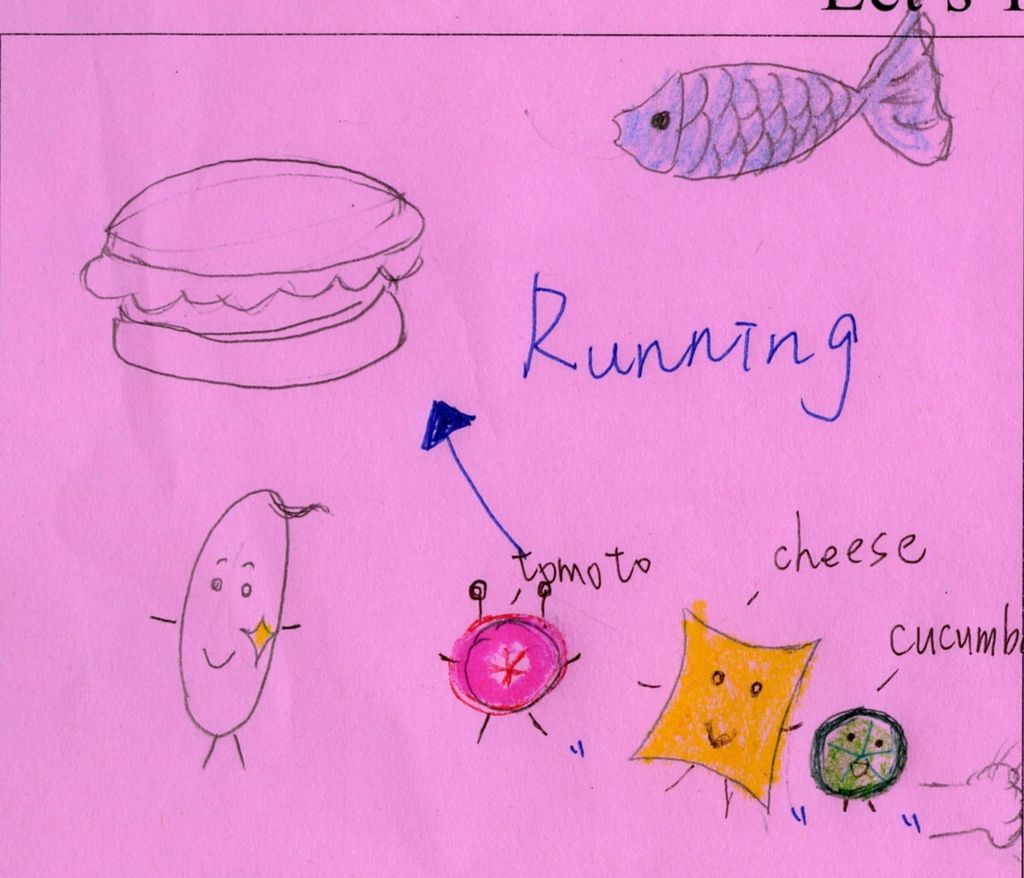 Let's
Running
tomoto
cheese
cucumb